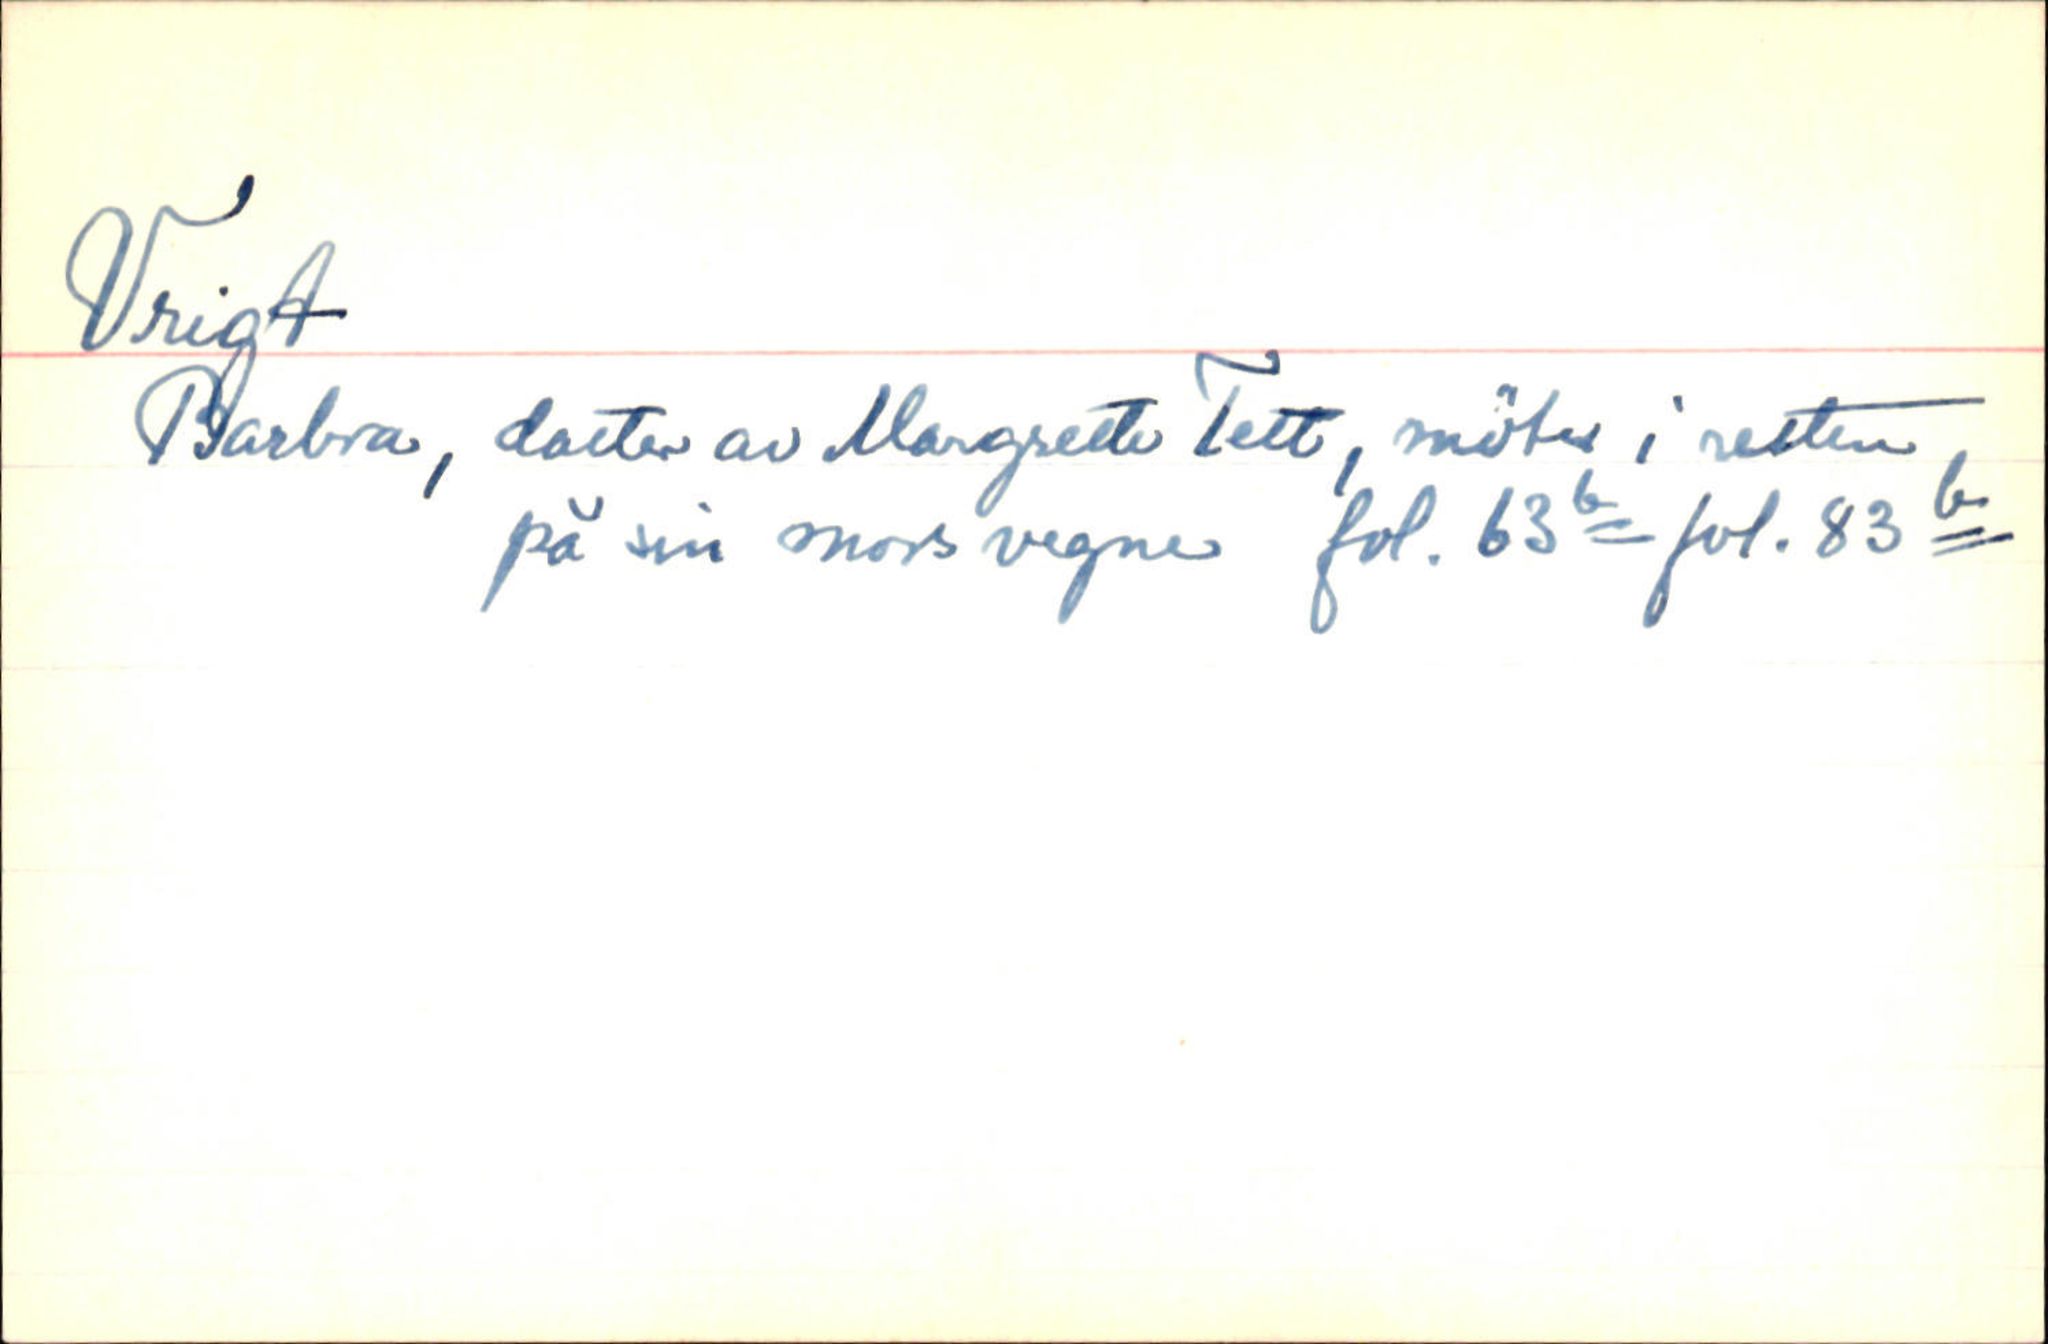 Vrigt
Barbra, datter av Margrete Tett, möter i retten
på sin mors vegne fol. 63b fol. 83b